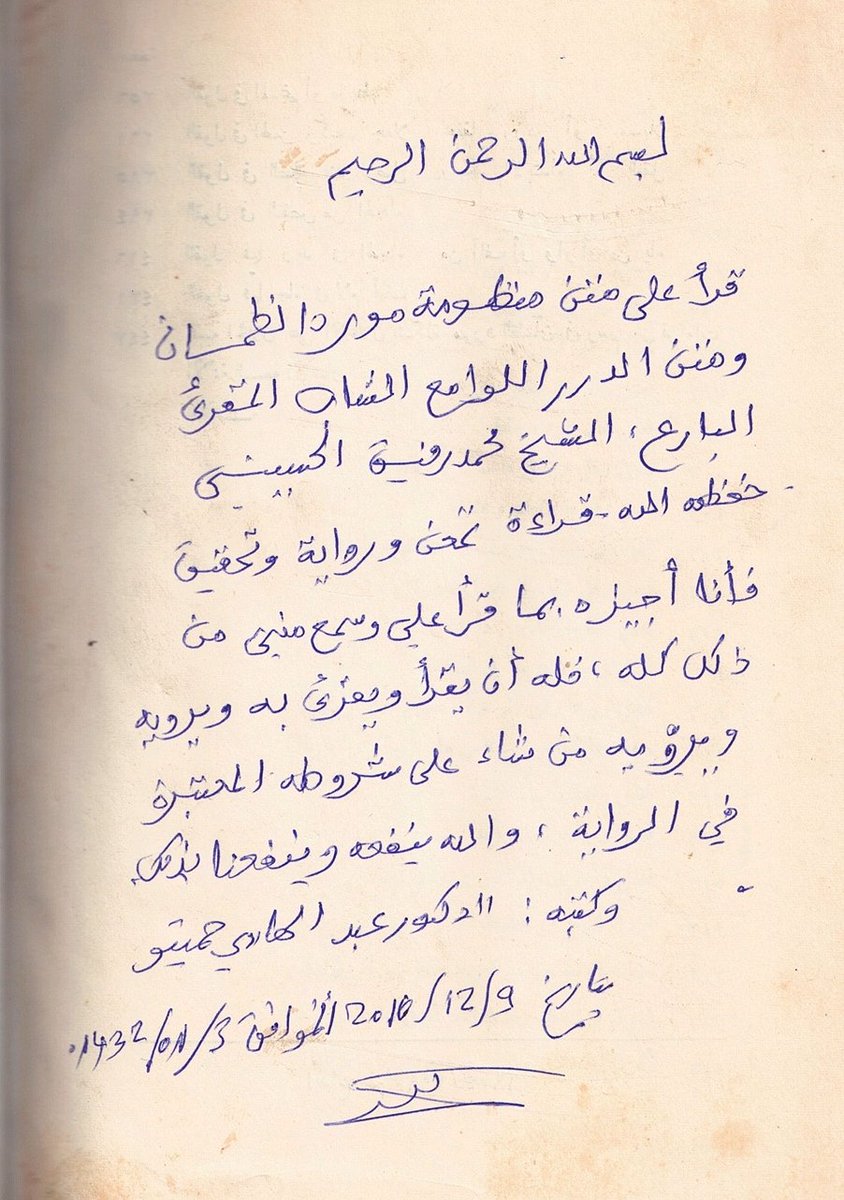 بسم الله الرحمن الرحيم
قرأ علي متن منظومة مورد الظمآن
ومتن الدرر اللوامع الشاب المقرئ
البارع، الشيخ محمد رفيق الحسيني
حفظه الله - قراءة تمعن ورواية وتحقيق
فأنا أجيزه بما قرأ علي وسمع مني من
ذلك كله، فله أن يقرأ ويقرئ به ويرويه
ويرويه من شاء على شروطه المعتبرة
في الرواية، والله ينفعه وينفعنا بذلك
وكتبه: الدكتور عبد الهادي حميتو
بتاريخ 2010/12/9 الموافق 3/01/1432.